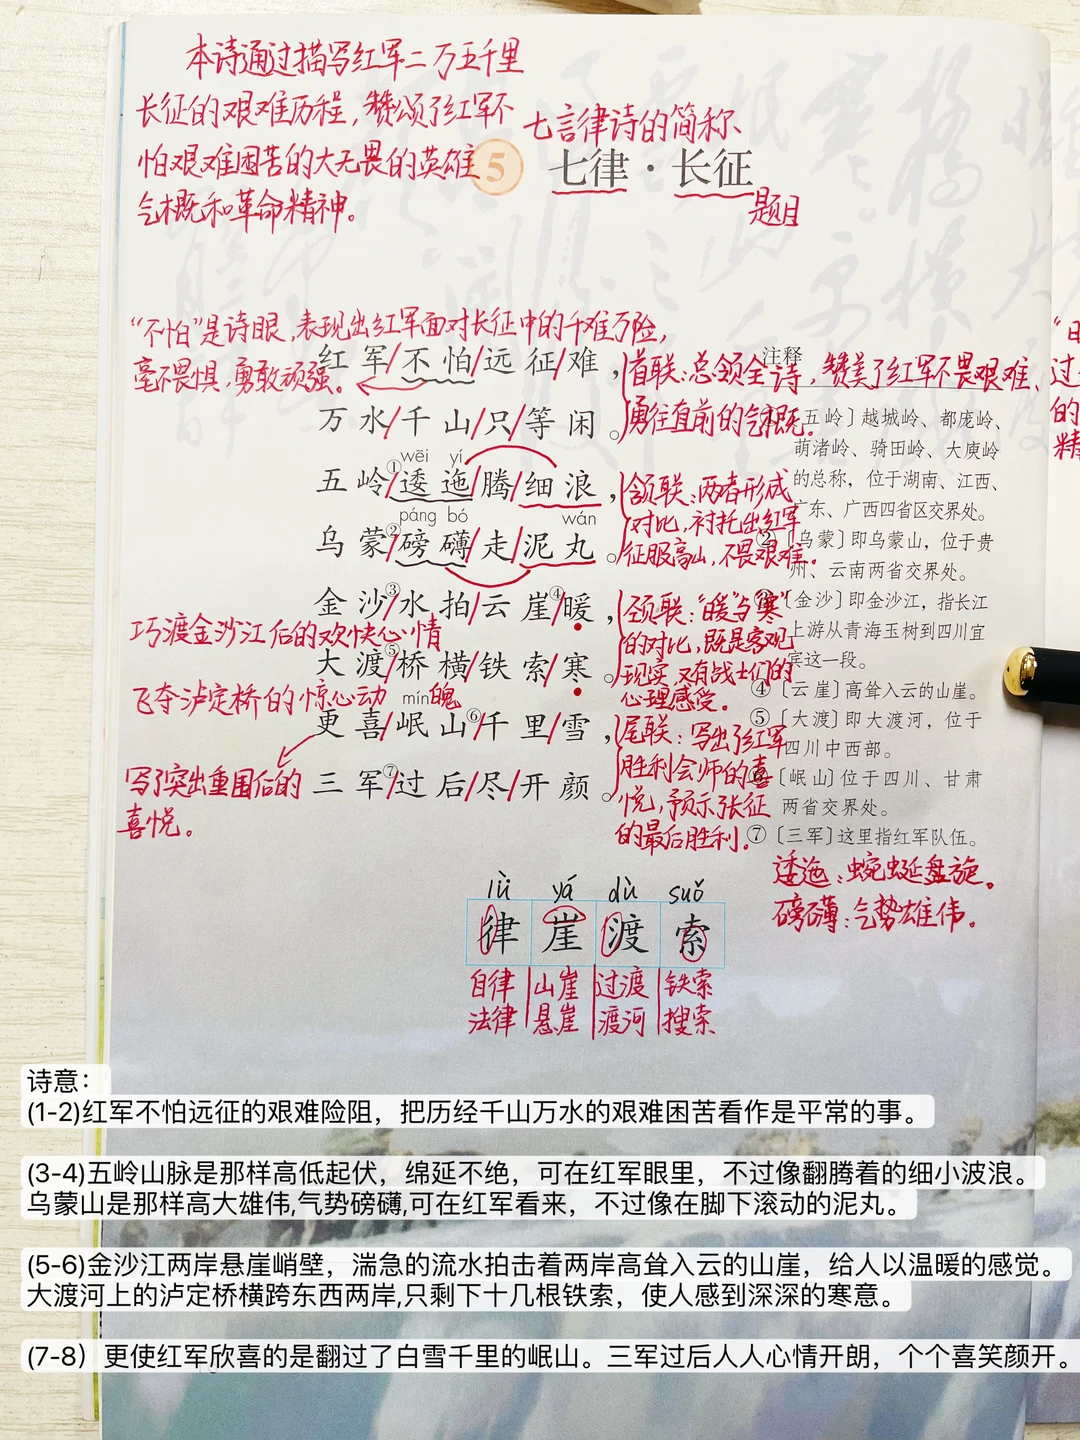 本诗通过描写红军二万五千里
长征的艰难历程，赞颂了红军不
怕艰难困苦的大无畏的英雄
气概和革命精神。
七言律诗的简称
5 七律·长征
题目
“不怕”是诗眼，表现出红军面对长征中的千难万险，
毫不畏惧，勇敢顽强。
红军/不怕/远征/难，
万水/千山/只/等闲。
wēi yí
五岭①/逶迤/腾/细浪，
páng bó wán
乌蒙②/磅礴/走/泥丸。
金沙③/水拍/云崖④/暖，
大渡⑤/桥横/铁索/寒。
mín
更喜/岷山⑥/千里/雪，
三军⑦/过后/尽/开颜。
巧渡金沙江后的欢快心情
飞夺泸定桥的惊心动魄
写了突出重围后的
喜悦。
首联：总领全诗，赞美了红军不畏艰难、
勇往直前的气概。
颔联：两者形成
对比，衬托出红军
征服高山，不畏艰难。
颈联：“暖”与“寒”
的对比，既是客观
现实又有战士们的
心理感受。
尾联：写出了红军
胜利会师的喜
悦，预示长征
的最后胜利。
注释
〔五岭〕越城岭、都庞岭、
萌渚岭、骑田岭、大庾岭
的总称，位于湖南、江西、
广东、广西四省区交界处。
②〔乌蒙〕即乌蒙山，位于贵
州、云南两省交界处。
③〔金沙〕即金沙江，指长江
上游从青海玉树到四川宜
宾这一段。
④〔云崖〕高耸入云的山崖。
⑤〔大渡〕即大渡河，位于
四川中西部。
⑥〔岷山〕位于四川、甘肃
两省交界处。
⑦〔三军〕这里指红军队伍。
逶迤：蜿蜒盘旋。
磅礴：气势雄伟。
lǜ yá dù suǒ
律 崖 渡 索
自律 山崖 过渡 铁索
法律 悬崖 渡河 搜索
诗意：
(1-2)红军不怕远征的艰难险阻，把历经千山万水的艰难困苦看作是平常的事。
(3-4)五岭山脉是那样高低起伏，绵延不绝，可在红军眼里，不过像翻腾着的细小波浪。
乌蒙山是那样高大雄伟,气势磅礴,可在红军看来，不过像在脚下滚动的泥丸。
(5-6)金沙江两岸悬崖峭壁，湍急的流水拍击着两岸高耸入云的山崖，给人以温暖的感觉。
大渡河上的泸定桥横跨东西两岸,只剩下十几根铁索，使人感到深深的寒意。
(7-8）更使红军欣喜的是翻过了白雪千里的岷山。三军过后人人心情开朗，个个喜笑颜开。